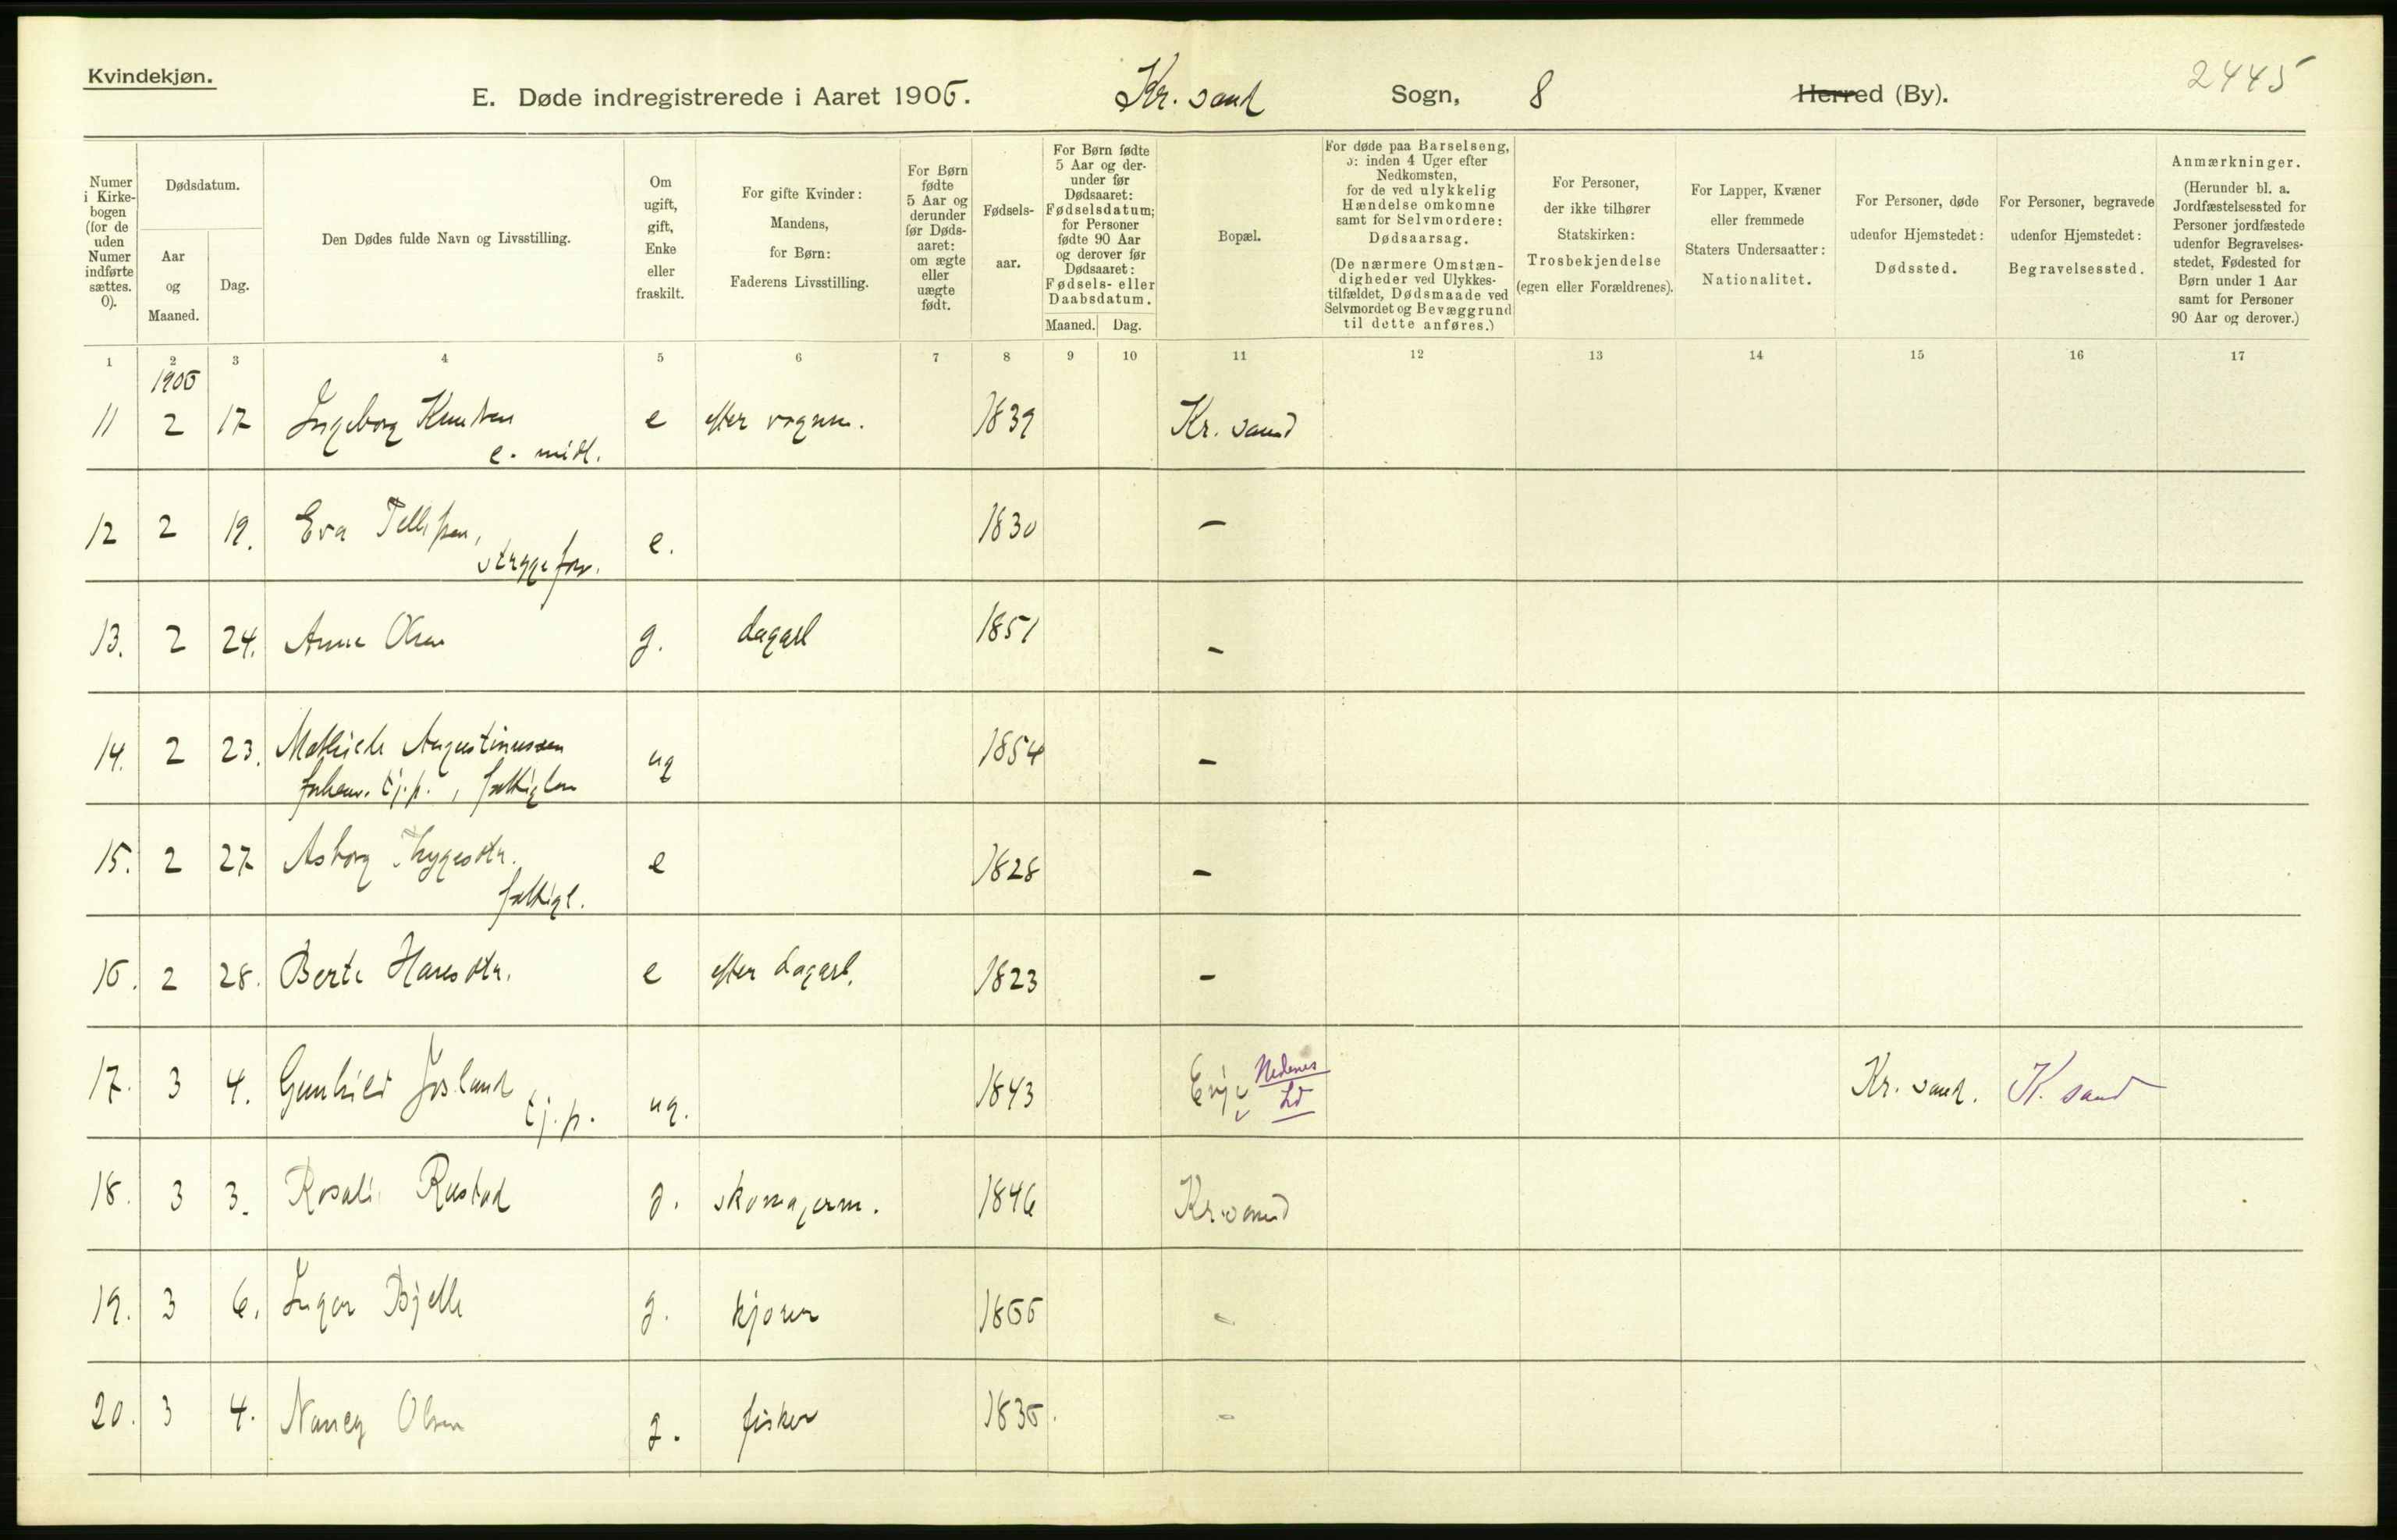 Kvindekjøn.
E. Døde indregistrerede i Aaret 1906. Kr. sand Sogn, 8 Herred (By).
2445
Numer i Kirkebogen (for de uden Numer indførte sættes. 0).
Dødsdatum.
Aar og Maaned.
Dag.
Den Dødes fulde Navn og Livsstilling.
Om ugift, gift, Enke eller fraskilt.
For gifte Kvinder: Mandens, for Børn: Faderens Livsstilling.
For Børn fødte 5 Aar og derunder før Dødsaaret: om ægte eller uægte født.
Fødselsaar.
For Børn fødte 5 Aar og derunder før Dødsaaret: Fødselsdatum; for Personer fødte 90 Aar og derover før Dødsaaret: Fødsels- eller Daabsdatum.
Maaned. Dag.
Bopæl.
For døde paa Barselseng, ɔ: inden 4 Uger efter Nedkomsten, for de ved ulykkelig Hændelse omkomne samt for Selvmordere: Dødsaarsag. (De nærmere Omstændigheder ved Ulykkestilfældet, Dødsmaade ved Selvmordet og Bevæggrund til dette anføres.)
For Personer, der ikke tilhører Statskirken: Trosbekjendelse (egen eller Forældrenes).
For Lapper, Kvæner eller fremmede Staters Undersaatter: Nationalitet.
For Personer, døde udenfor Hjemstedet: Dødssted.
For Personer, begravede udenfor Hjemstedet: Begravelsessted.
Anmærkninger. (Herunder bl. a. Jordfæstelsessted for Personer jordfæstede udenfor Begravelsesstedet, Fødested for Børn under 1 Aar samt for Personer 90 Aar og derover.)
1 2 3 4 5 6 7 8 9 10 11 12 13 14 15 16 17
1906
11 2 17 Ingeborg Knutsen e efter vognm. 1839 Kr. sand
e. midl.
12 2 19. Eva Tellefsen, e. 1830 –
strygeforr.
13. 2 24. Anne Olsen g. dagarb 1851 –
14. 2 23. Mathilde Augustinussen ug 1854 –
forhenv. tj.p., fattiglem
15. 2 27 Asborg Thygesdtr. e 1828 –
fattigl.
16. 2 28. Berte Hansdtr. e efter dagarb. 1823 –
17. 3 4. Gunhild Josland ug. 1843 Evje Nedenes Kr. sand. K. sand
tj.p. Ld
18. 3 3. Rosalie Rustad g. skomagerm. 1846 Kr.sand
19. 3 6. Inger Bjelle g. kjører 1866 –
20. 3 4. Nancy Olsen g. fisker 1836. –